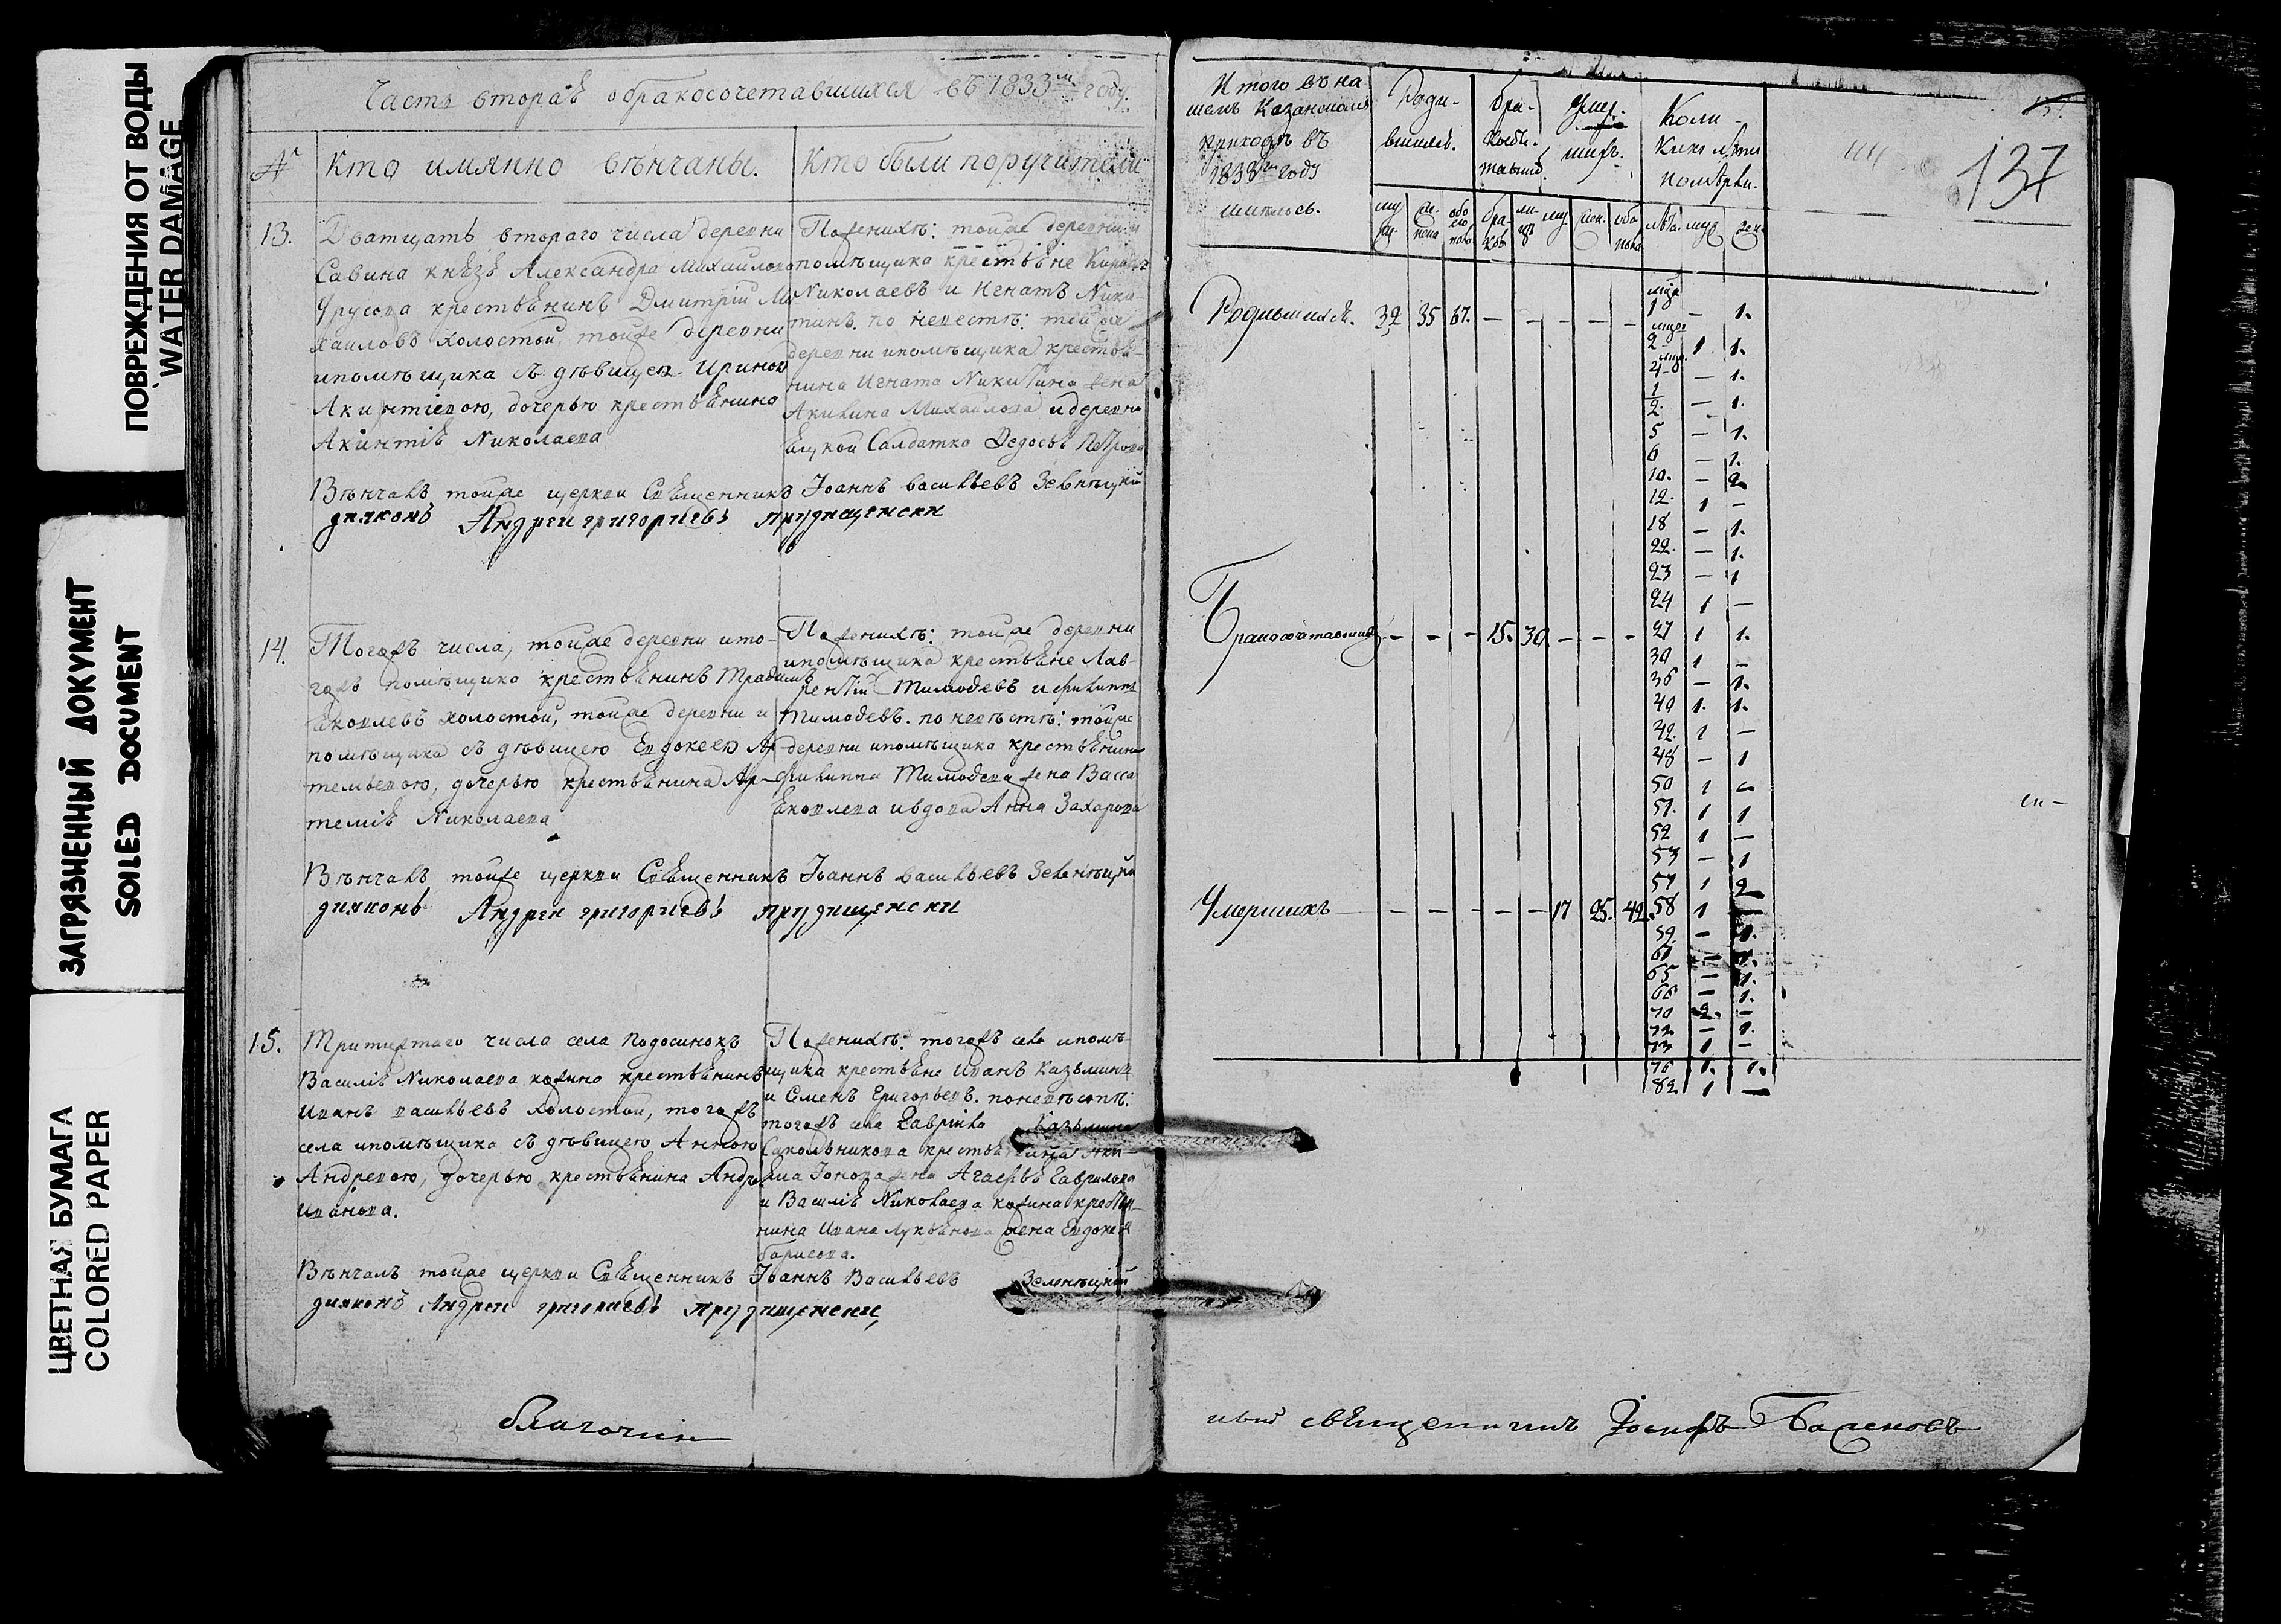 ПОВРЕЖДЕНИЯ ОТ ВОДЫ
WATER DAMAGE
ЗАГРЯЗНЕННЫЙ ДОКУМЕНТ
SOILED DOCUMENT
ЦВЕТНАЯ БУМАГА
COLORED PAPER
Часть вторая о бракосочетавшихся въ 1833м году.
№ Кто имянно вѣнчаны. Кто были поручители
13.
Дватцать втораго числа деревни
Савина князя Александра Михаилова
Урусова крестьянинъ Дмитрій Ми
хаиловъ холостой, тойже деревни
ипомѣщика съ дѣвицею Ириною
Акинтіевою, дочерью крестьянина
Акинтія Николаева
Поженихѣ: тойже деревни и
помѣщика крестьяне
Николаевъ и Игнатъ Ники
тинъ. по невестѣ: тойже
деревни ипомѣщика крестья-
нина Игната Никитина жена
Акилина Михаилова идеревни
Салдатка Федосья Петрова
Вѣнчалъ тойже церкви Священникъ Іоаннъ Васильевъ Зеленецкій
дияконъ Андреи григориевъ прудищенски
14.
Тогожъ числа, тойже деревни ито-
гожъ помѣщика крестьянинъ
Яковлевъ холостой, тойже деревни и
помѣщика съ дѣвицею Евдокеею Ар
темьевою, дочерью крестьянина Ар-
темія Николаева
Поженихѣ: тойже деревни
ипомѣщика крестьяне Лав-
рентій Тимофевъ ифилиппъ
Тимофевъ. по невѣстѣ: тойже
деревни ипомѣщика крестьянина
филиппа Тимофева жена Васса
Яковлева ивдова Анна Захарова
Вѣнчалъ тойже церкви Священникъ Іоаннъ Васильевъ Зеленецкій
дияконъ Андреи григориевъ прудищенски
15.
Тритцатаго числа села Подосинокъ
Василія Николаева кожина крестьянинъ
Иванъ васильевъ холостой, тогожъ
села ипомѣщика съ дѣвицею Анною
Андревою, дочерью крестьянина Андрея
Иванова.
Поженихѣ: тогожъ села ипомѣ-
щика крестьяне Иванъ Казьминъ
и Семенъ Григорьевъ. поневѣстѣ:
тогожъ села Гаврила Казьмина
Сакольникова крестьянина Аки-
ма Іонова жена Агафья Гаврилова
и Василія Николаева кожина крестья-
нина Ивана Лукьянова жена Евдокея
борисова.
Вѣнчалъ тойже церкви Священникъ Іоаннъ Васильевъ Зеленецкій
дияконъ Андреи григориевъ прудищенски
благочин
Итого вона
шемъ Казанскомъ
приходѣ въ
1833м году
имѣлось.
Роди-
вшихся.
бра-
косоче-
тавших.
умер-
шихъ.
Коли-
кихъ лѣтъ
померли.
137
Родившихся. 32 35 67. — — — — —
Бракосочетавшихся — — — 15. 30. — — —
Умершихъ — — — — — 17 25. 42.
1 — 1.
2 1 1.
4 — 1.
1/2 — 1.
5 — 1.
6 — 1.
10. — 2
12. 1 —
18 — 1.
22. — 1.
23 — 1
24 1 —
27 1 1.
30 1 —
36 — 1.
40 1. 1.
42. 1 —
48 — 1
50 1 —
51. 1 1
52 1 —
53 — 1
57 1 2
58 1 —
59 — 1.
61 — 1.
65 — 1.
66 — 1.
70 2. —
72 — 1.
73 1 —
76 1. 1.
82 1 —
ный священникъ Іосифъ Баженовъ